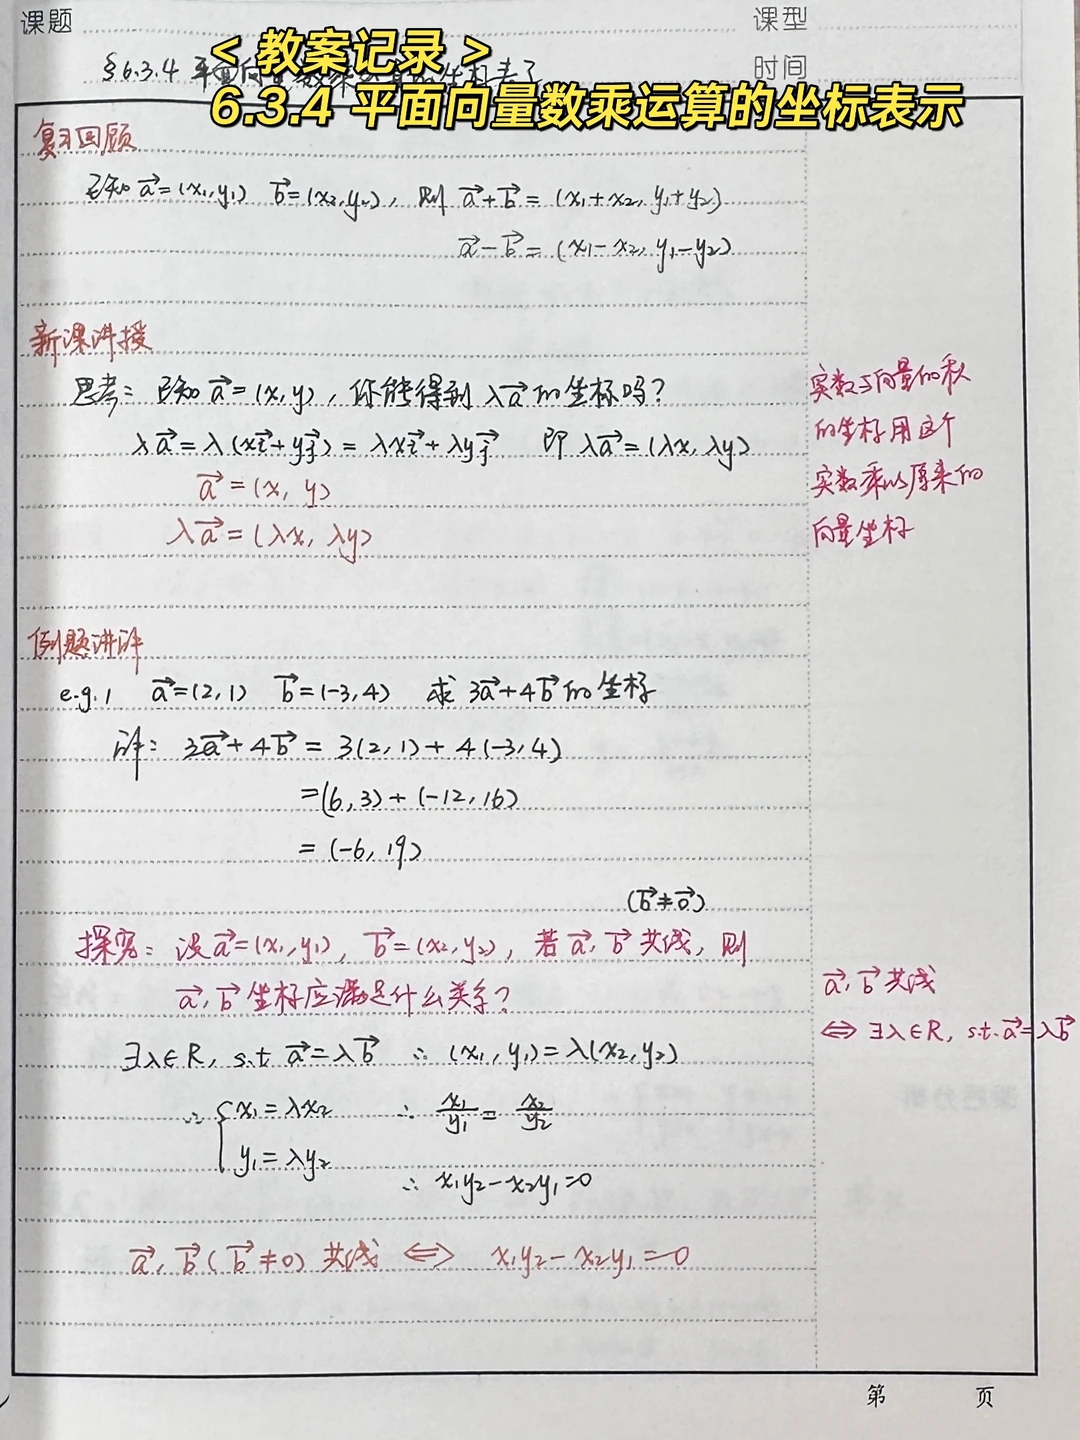 课题
课型
< 教案记录 >
§6.3.4 平面向量数乘运算的坐标表示
时间
6.3.4 平面向量数乘运算的坐标表示
复习回顾
已知 a⃗=(x₁,y₁) b⃗=(x₂,y₂), 则 a⃗+b⃗=(x₁+x₂, y₁+y₂)
a⃗-b⃗=(x₁-x₂, y₁-y₂)
新课讲授
思考: 已知 a⃗=(x,y), 你能得到 λa⃗ 的坐标吗?
λa⃗=λ(xi⃗+yj⃗)=λxi⃗+λyj⃗ 即 λa⃗=(λx,λy)
a⃗=(x, y)
λa⃗=(λx, λy)
实数与向量的积
的坐标用这个
实数乘以原来的
向量坐标
例题讲评
e.g.1 a⃗=(2,1) b⃗=(-3,4) 求 3a⃗+4b⃗ 的坐标
评: 3a⃗+4b⃗ = 3(2,1)+4(-3,4)
=(6,3)+(-12,16)
=(-6,19)
(b⃗≠0⃗)
探究: 设 a⃗=(x₁,y₁), b⃗=(x₂,y₂), 若 a⃗,b⃗ 共线, 则
a⃗,b⃗ 坐标应满足什么关系?
∃λ∈R, s.t. a⃗=λb⃗ ∴ (x₁,y₁)=λ(x₂,y₂)
∴ { x₁=λx₂ ∴ x₁/y₁ = x₂/y₂
y₁=λy₂
∴ x₁y₂-x₂y₁=0
a⃗,b⃗(b⃗≠0) 共线 ⇔ x₁y₂-x₂y₁=0
a⃗,b⃗ 共线
⇔ ∃λ∈R, s.t. a⃗=λb⃗
第 页